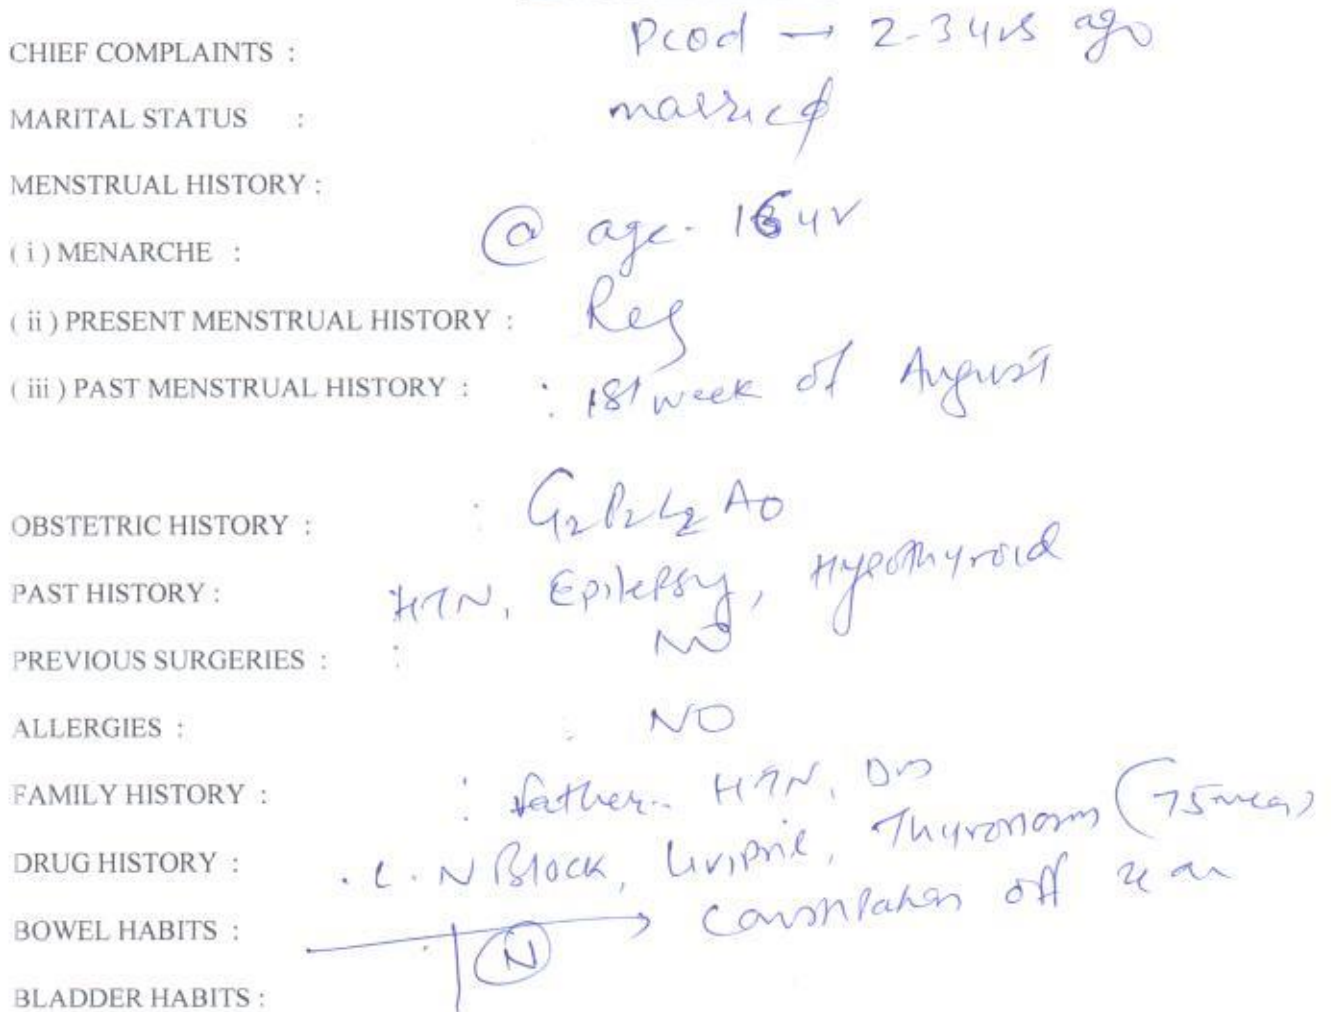 CHIEF COMPLAINTS : Pcod → 2-3 yrs ago
MARITAL STATUS : married
MENSTRUAL HISTORY :
( i ) MENARCHE : @ age. yr
( ii ) PRESENT MENSTRUAL HISTORY : Reg
( iii ) PAST MENSTRUAL HISTORY : : 1st week of August
OBSTETRIC HISTORY : : G2P2L2 A0
PAST HISTORY : HTN, Epilepsy, Hypothyroid
PREVIOUS SURGERIES : : NO
ALLERGIES : : NO
FAMILY HISTORY : : father - HTN, DM
DRUG HISTORY : Block, Thyronorm (75 mcg)
BOWEL HABITS : N → Constipation off
BLADDER HABITS :